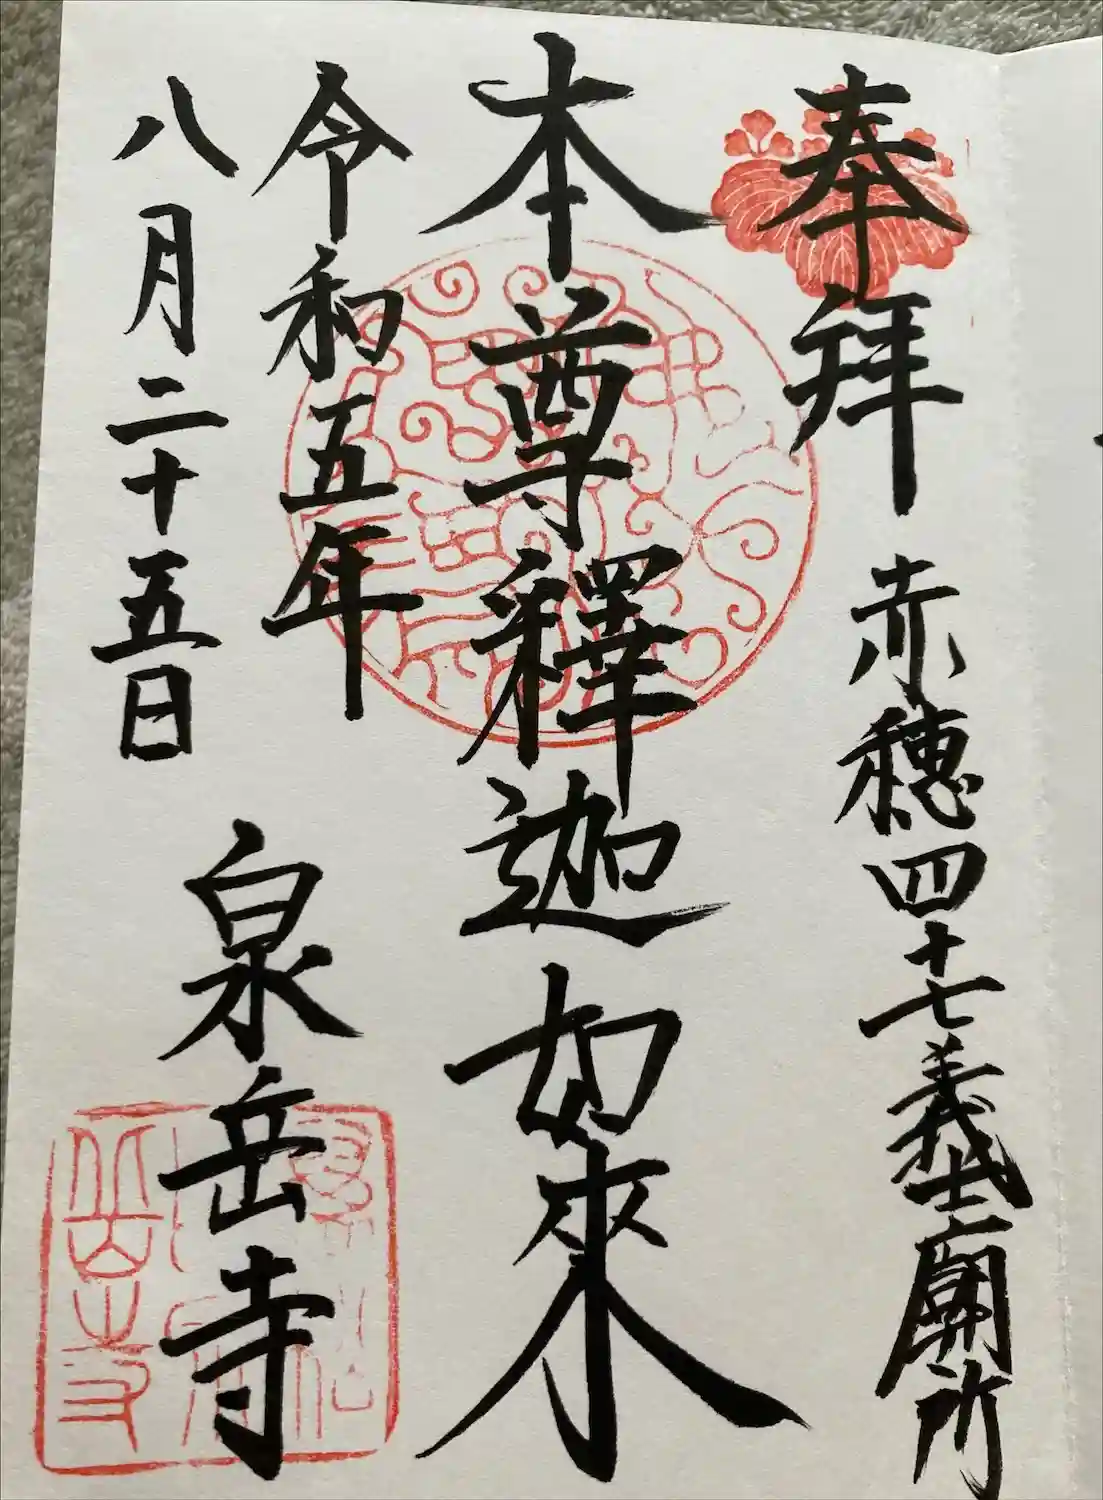 奉拝 赤穂四十七義士廟所
本尊釋迦如來
令和五年
八月二十五日
泉岳寺